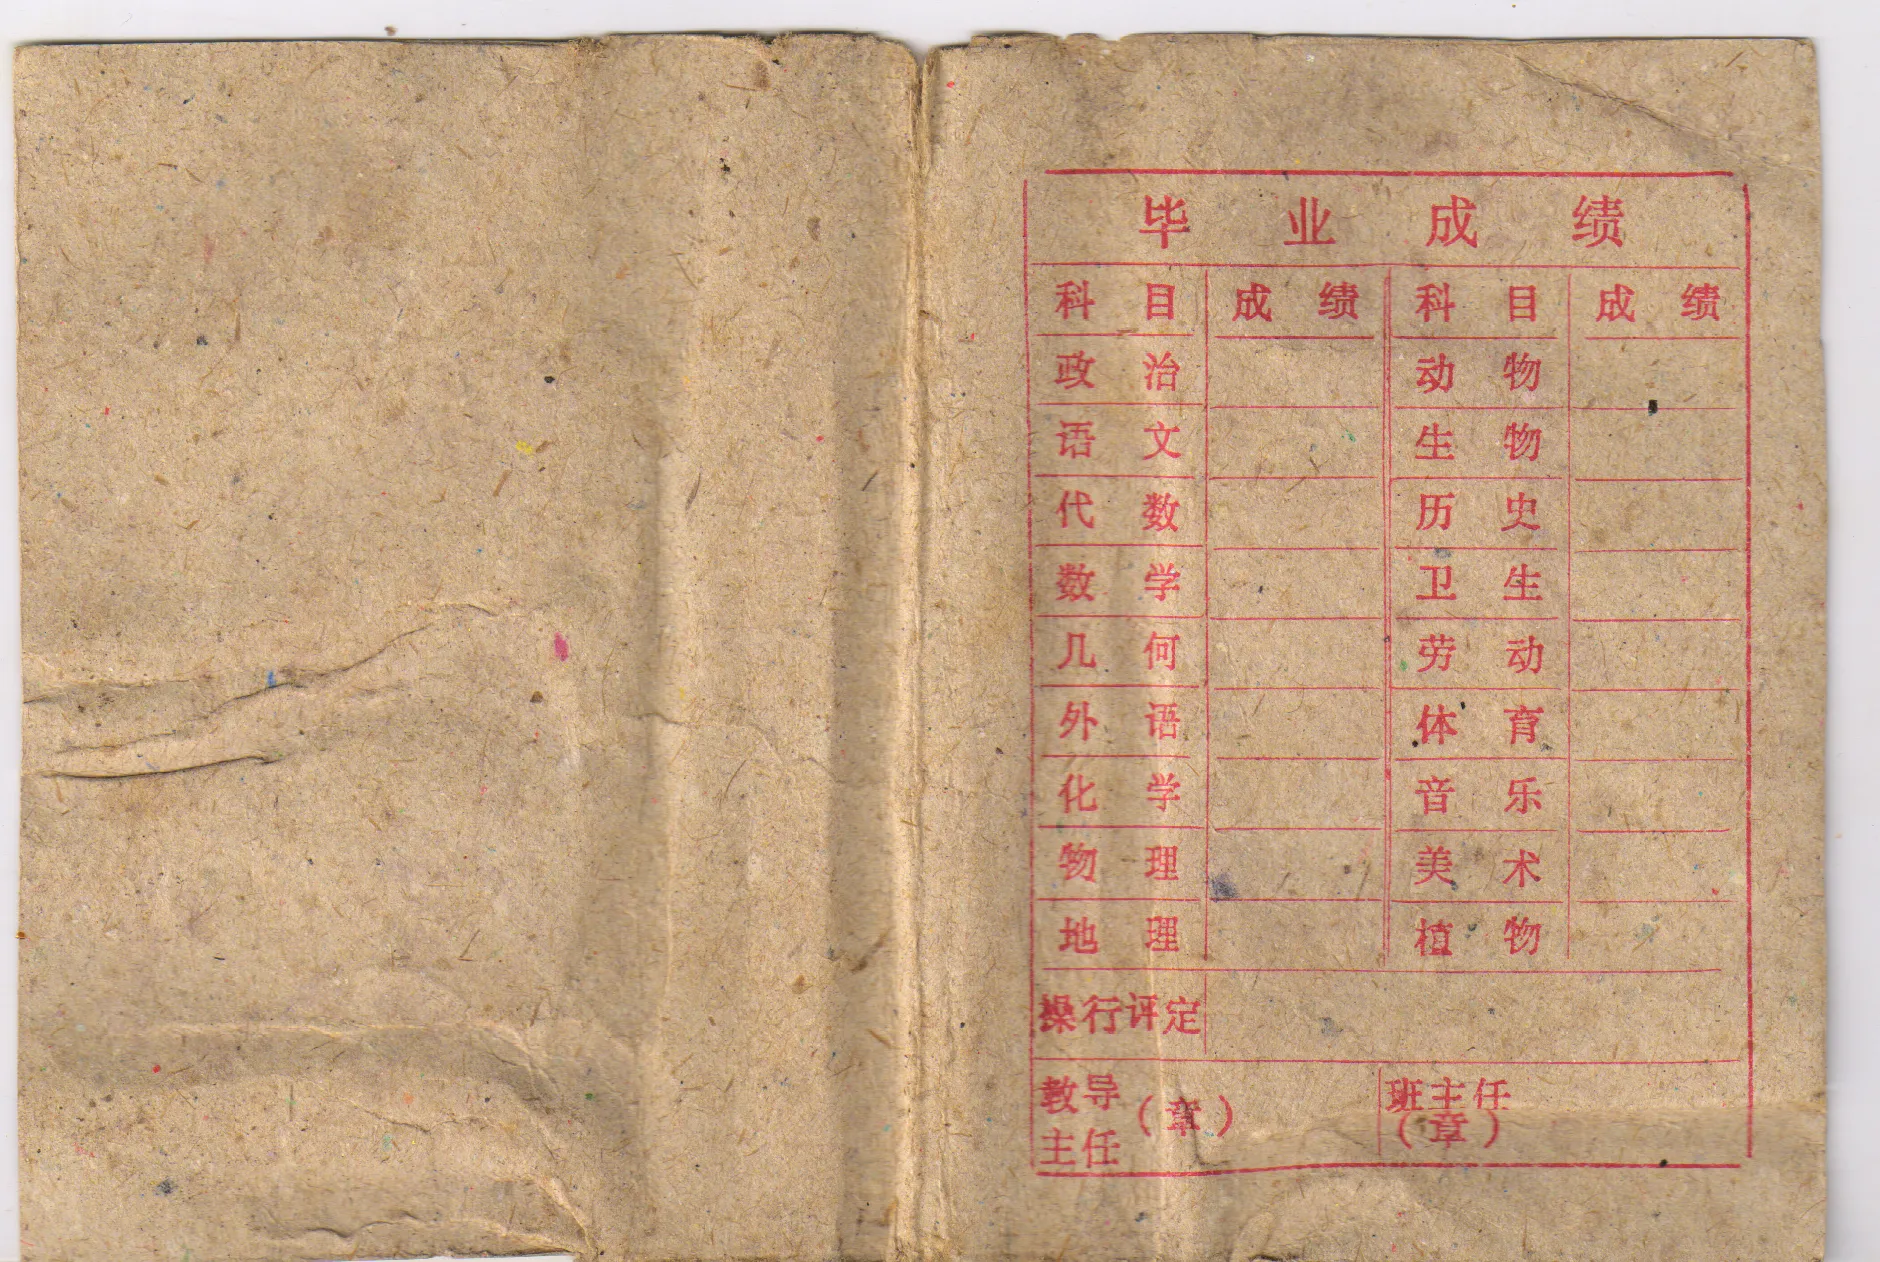 毕业成绩
科目 成绩 科目 成绩
政治 动物
语文 生物
代数 历史
数学 卫生
几何 劳动
外语 体育
化学 音乐
物理 美术
地理 植物
操行评定
教导主任（章） 班主任（章）